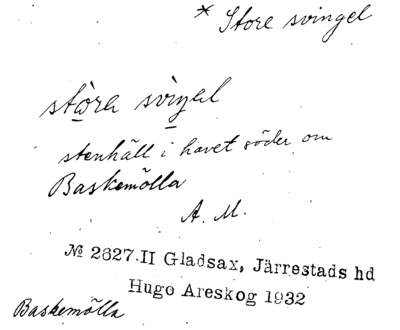 * Store svingel
stòra svìŋəl
stenhäll i havet söder om
Baskemölla
A. M.
№ 2627.II Gladsax, Järrestads hd
Hugo Areskog 1932
Baskemölla